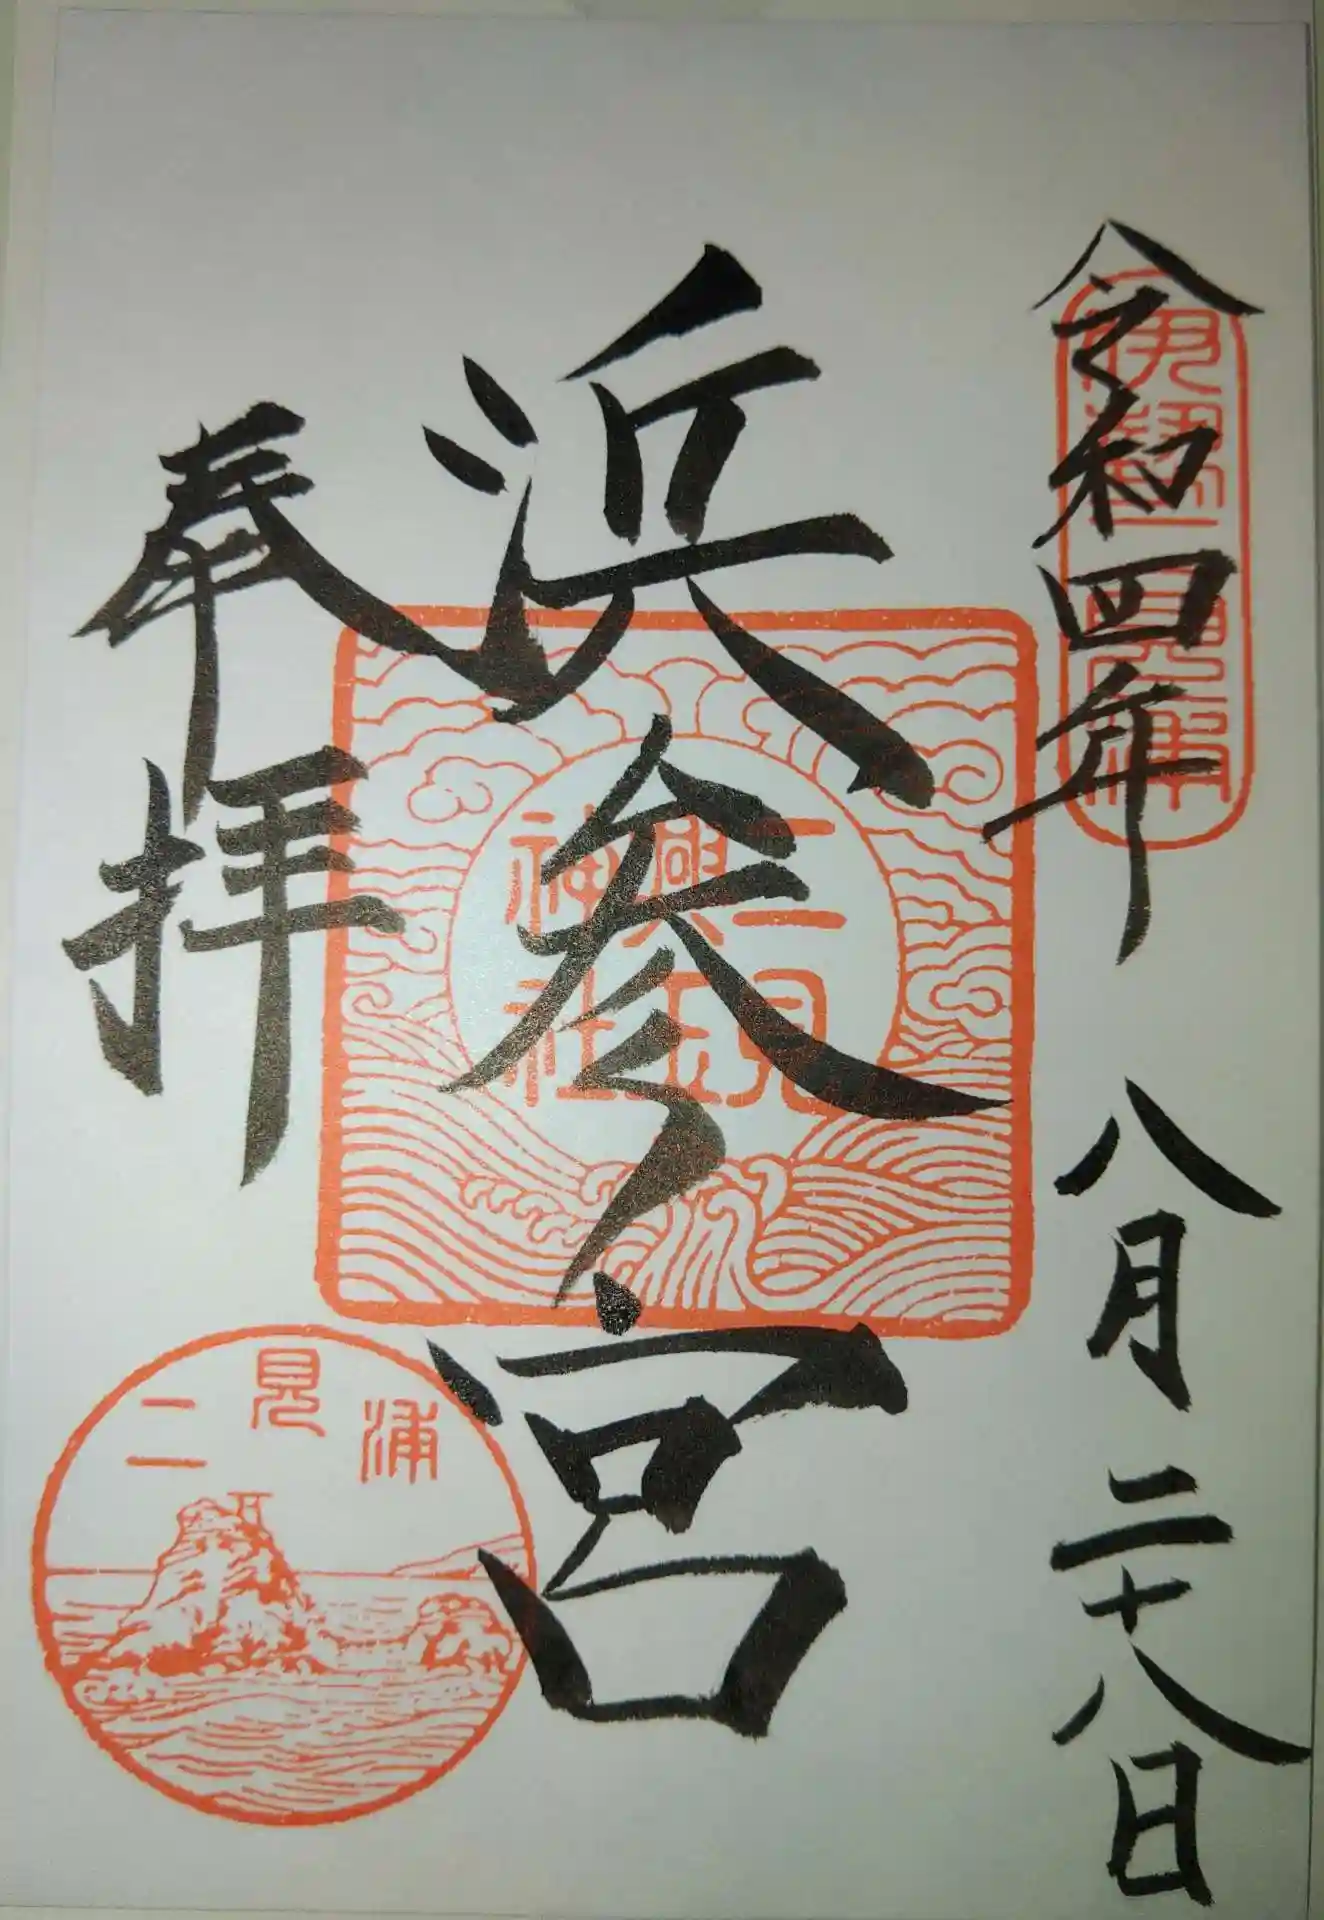 令和四年 八月二十八日
伊勢二見浦
浜参宮
二見
興玉
神社
奉拝
二見浦